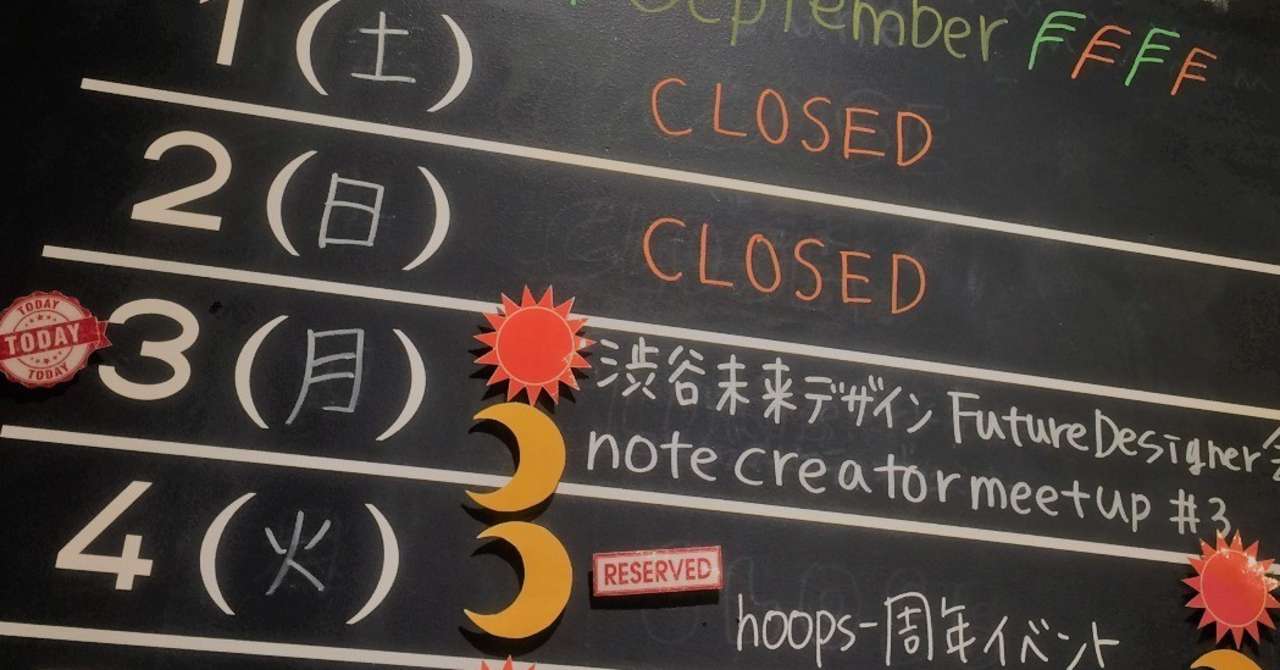 September
1(土) CLOSED
2(日) CLOSED
TODAY
TODAY
TODAY
3(月) 渋谷未来デザイン FutureDesigner会
note creator meetup #3
4(火) RESERVED
hoops一周年イベント